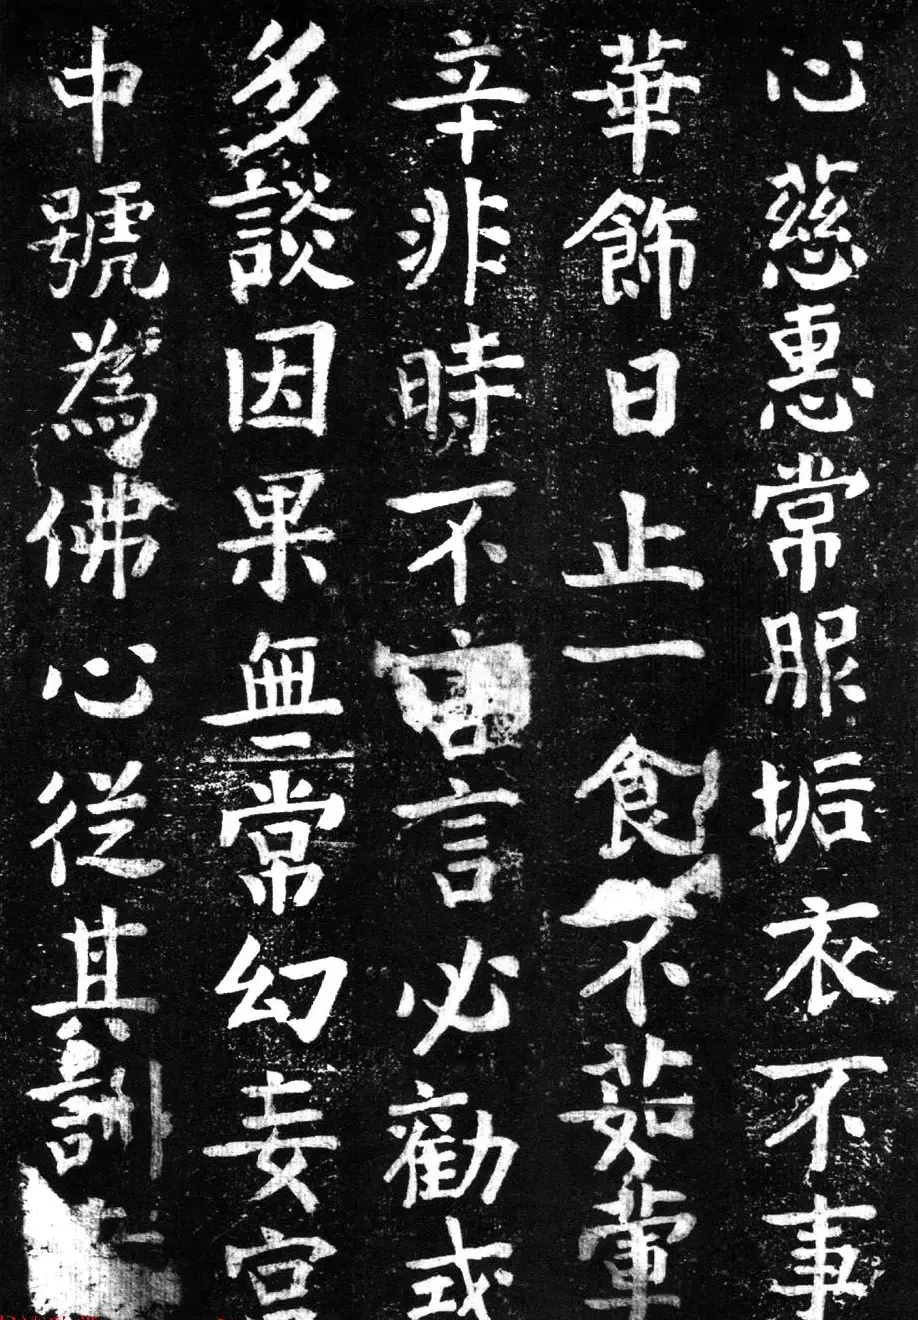 心慈惠常服垢衣不事
華飾日止一食不茹葷
辛非時不言言必勸戒
多談因果無常幻妄宮
中號為佛心從其訓